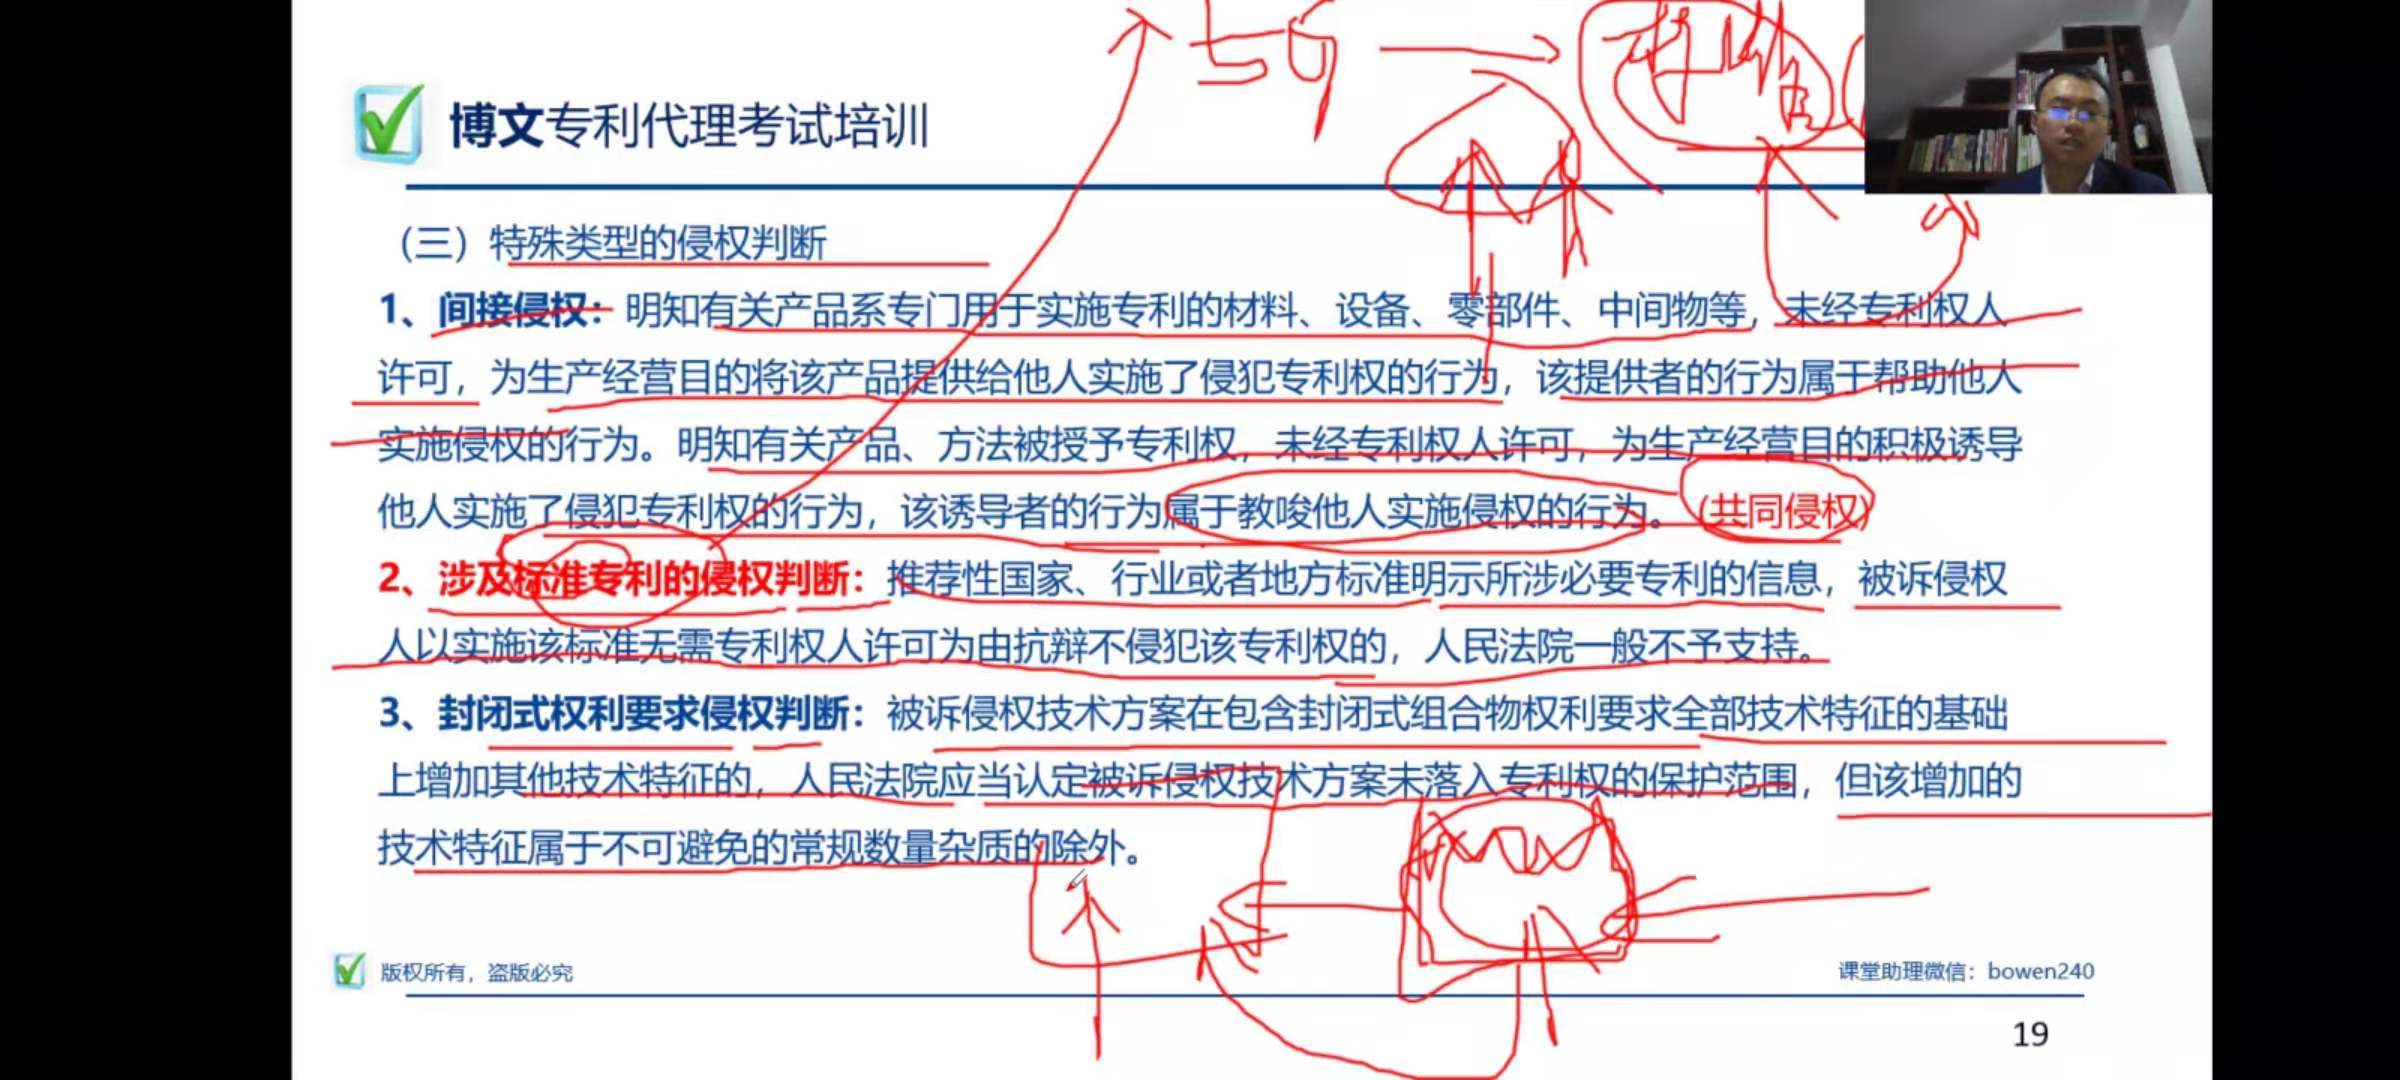 5G
博文专利代理考试培训
（三）特殊类型的侵权判断
1、间接侵权：明知有关产品系专门用于实施专利的材料、设备、零部件、中间物等，未经专利权人
许可，为生产经营目的将该产品提供给他人实施了侵犯专利权的行为，该提供者的行为属于帮助他人
实施侵权的行为。明知有关产品、方法被授予专利权，未经专利权人许可，为生产经营目的积极诱导
他人实施了侵犯专利权的行为，该诱导者的行为属于教唆他人实施侵权的行为。（共同侵权）
2、涉及标准专利的侵权判断：推荐性国家、行业或者地方标准明示所涉必要专利的信息，被诉侵权
人以实施该标准无需专利权人许可为由抗辩不侵犯该专利权的，人民法院一般不予支持。
3、封闭式权利要求侵权判断：被诉侵权技术方案在包含封闭式组合物权利要求全部技术特征的基础
上增加其他技术特征的，人民法院应当认定被诉侵权技术方案未落入专利权的保护范围，但该增加的
技术特征属于不可避免的常规数量杂质的除外。
版权所有，盗版必究
课堂助理微信：bowen240
19